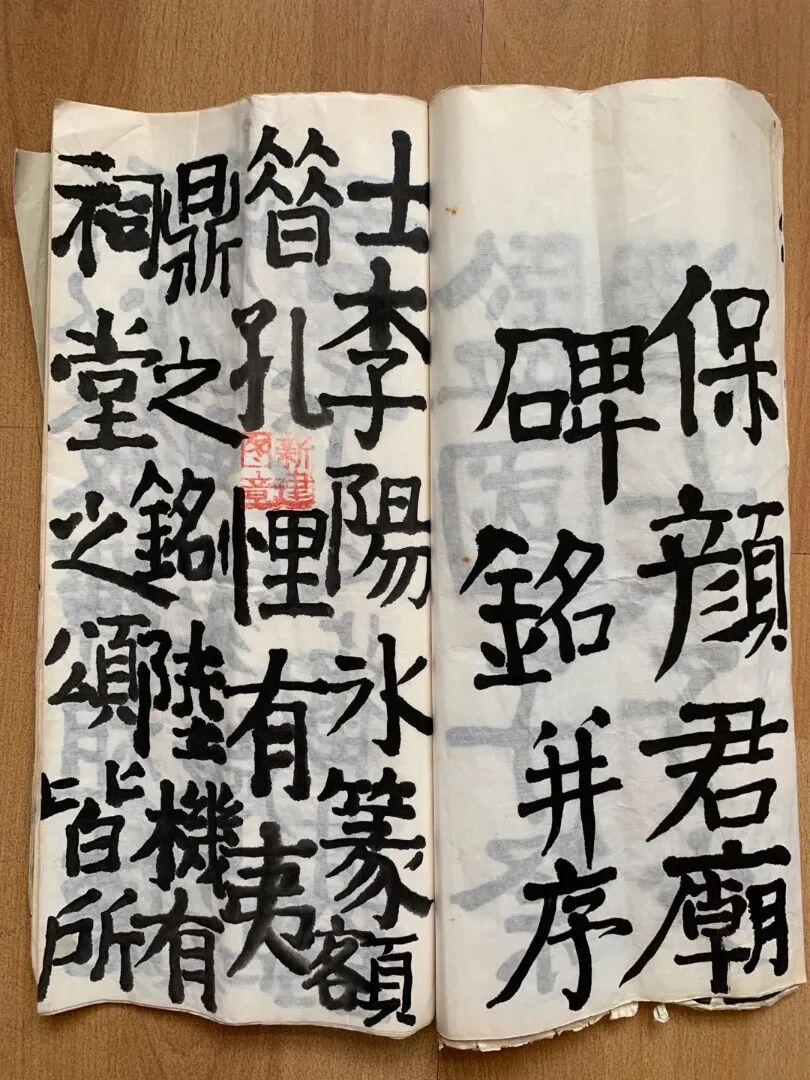 保顔君廟
碑銘并序
士李陽氷篆額
㫺孔悝有夷
鼎之銘陸機有
祠堂之頌皆所
新建
图章